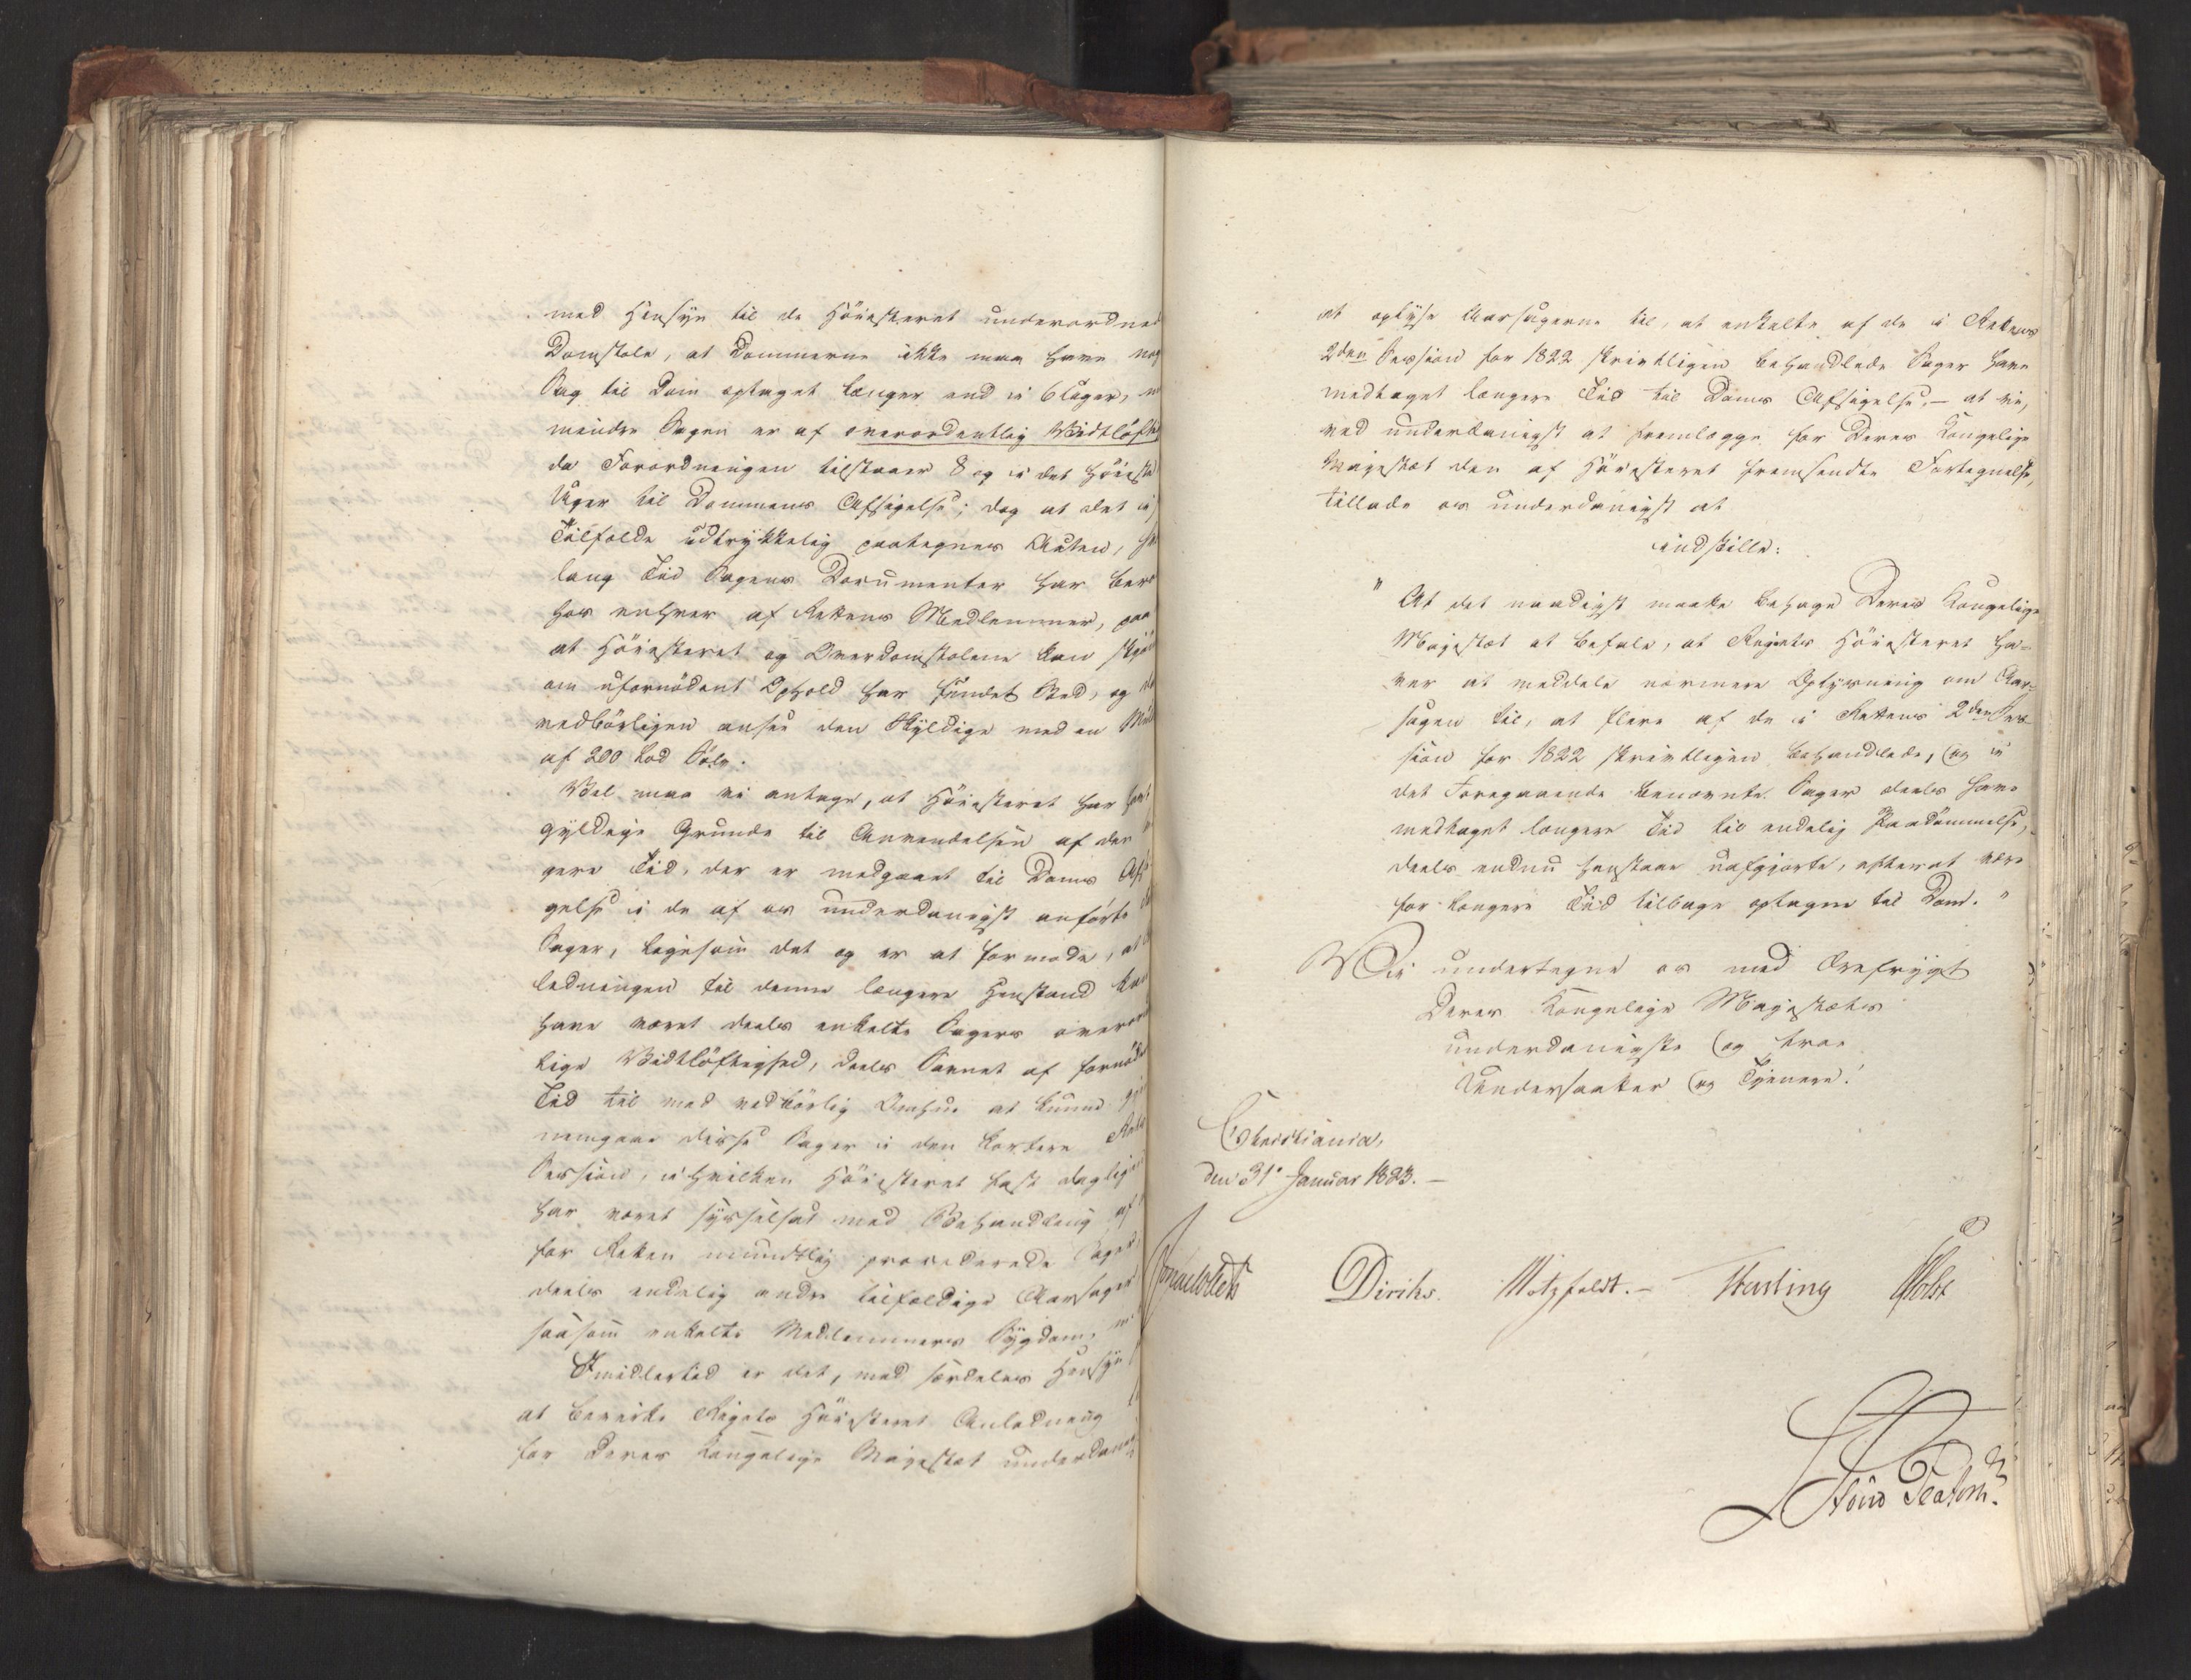 med Hensyn til de Höiesteret underordned
Domstole, at Dommerne ikke maa have nog
Sag til Dom optaget længer end i 6 Uger, m
mindre Sagen er af overordentlig Vidtløftig
da Forordningen tilstaaer 8 og i det Höieste
Uger til Dommens Afsigelse; dog at det i
Tilfælde udtrykkelig paategnes Acten, hv
lang Tid Sagens Documenter har bero
hos enhver af Rettens Medlemmer, paa
at Höiesteret og Overdomstolene kan skjön
om ufornödent Ophold har fundet Sted, og da
vedbörligen ansee den Skyldige med en Mulk
af 200 Lod Sölv.
Vel maa vi antage, at Höiesteret har havt
gyldige Grunde til Anvendelsen af den
gere Tid, der er medgaaet til Doms Afsi
gelse i de af os underdanigst anförte
Sager, ligesom det og er at formode, at
ledningen til denne længere Henstand kan
have været deels enkelte Sagers overord
lige Vidtlöftighed, deels Savnet af fornöd
Tid til med vedbörlig Omhue at kunne gje
nemgaae disse Sager i den kortere Rets
Session, i hvilken Höiesteret fast daglig
har været sysselsat med Behandling af
for Retten mundtlig procederede Sager,
deels endelig andre tilfældige Aarsager
saasom enkelte Medlemmers Sygdom, m.
Imidlertid er det, med særdeles Hensyn
at bevirke Rigets Höiesteret Anledning
for Deres Kongelige Majestæt underdani
at oplyse Aarsagerne til, at enkelte af de i Rettens
2den Session for 1822 skriftligen behandlede Sager have
medtaget længere Tid til Doms Afsigelse, – at vi,
ved underdanigst at fremlægge for Deres Kongelige
Majestæt den af Höiesteret fremsendte Fortegnelse,
tillade os underdanigst at
indstille:
" At det naadigst maatte behage Deres Kongelige
Majestæt at befale, at Rigets Höiesteret ha-
ver at meddele nærmere Oplysning om Aar-
sagen til, at flere af de i Rettens 2den Ses-
sion for 1822 skriftligen behandlede, og i
det Foregaaende benævnte Sager deels have
medtaget længere Tid til endelig Paadömmelse,
deels endnu henstaae uafgjorte, efterat være
for længere Tid tilbage optagne til Dom. "
Vi undertegne os med Ærefrygt
Deres Kongelige Majestæts
underdanigste og troe
Undersaatter og Tjenere!
Christiania,
den 31' Januar 1823. –
Diriks. Motzfeldt. – Fasting Holst